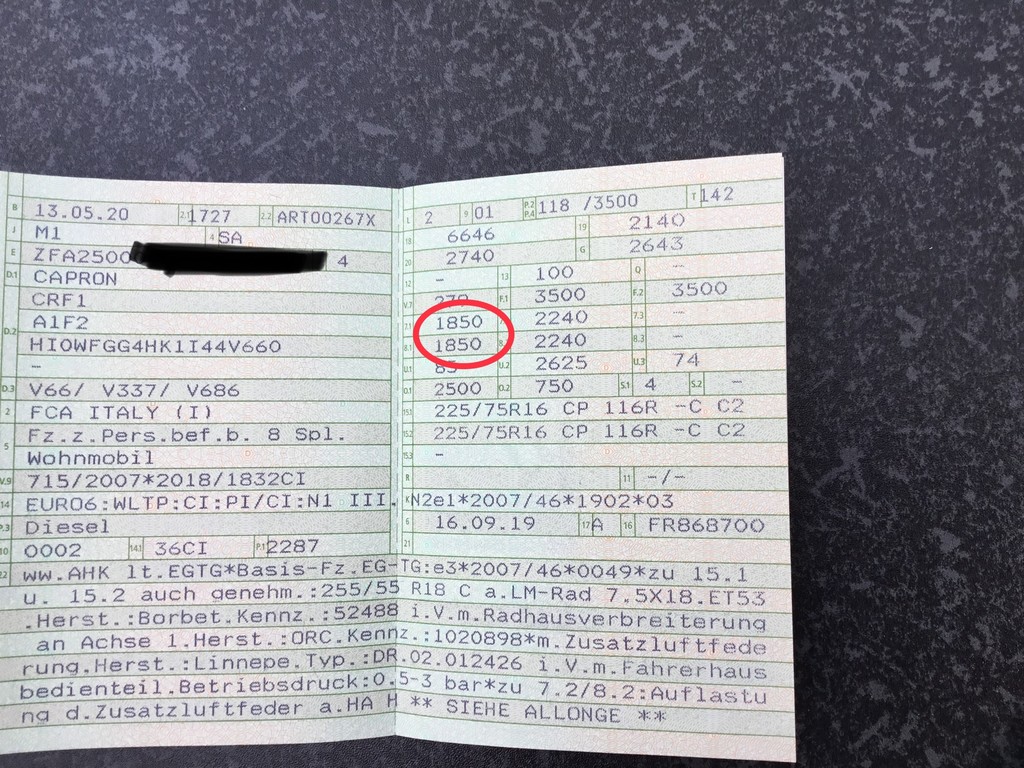 B 13.05.20 2.1 1727 2.2 ART00267X
J M1 4 SA
E ZFA2500 4
D.1 CAPRON
CRF1
D.2 A1F2
HIOWFGG4HK1I44V660
–
D.3 V66/ V337/ V686
2 FCA ITALY (I)
5 Fz.z.Pers.bef.b. 8 Spl.
Wohnmobil
V.9 715/2007*2018/1832CI
14 EURO6:WLTP:CI:PI/CI:N1 III,
P.3 Diesel
10 0002 14.1 36CI P.1 2287
L 2 9 01 P.2 P.4 118 /3500 T 142
18 6646 19 2140
20 2740 G 2643
12 – 13 100 Q –
V.7 270 F.1 3500 F.2 3500
7.1 1850 2240 7.3 –
8.1 1850 8 2240 8.3 –
U.1 85 U.2 2625 U.3 74
O.1 2500 O.2 750 S.1 4 S.2 –
15.1 225/75R16 CP 116R -C C2
15.2 225/75R16 CP 116R -C C2
15.3 –
R 11 -/-
K N2e1*2007/46*1902*03
6 16.09.19 17 A 16 FR868700
21
22 ww.AHK lt.EGTG*Basis-Fz.EG-TG:e3*2007/46*0049*zu 15.1
u. 15.2 auch genehm.:255/55 R18 C a.LM-Rad 7.5X18.ET53
.Herst.:Borbet.Kennz.:52488 i.V.m.Radhausverbreiterung
an Achse 1.Herst.:ORC.Kennz.:1020898*m.Zusatzluftfede
rung.Herst.:Linnepe.Typ.:DR.02.012426 i.V.m.Fahrerhaus
bedienteil.Betriebsdruck:0.5-3 bar*zu 7.2/8.2:Auflastu
ng d.Zusatzluftfeder a.HA H ** SIEHE ALLONGE **